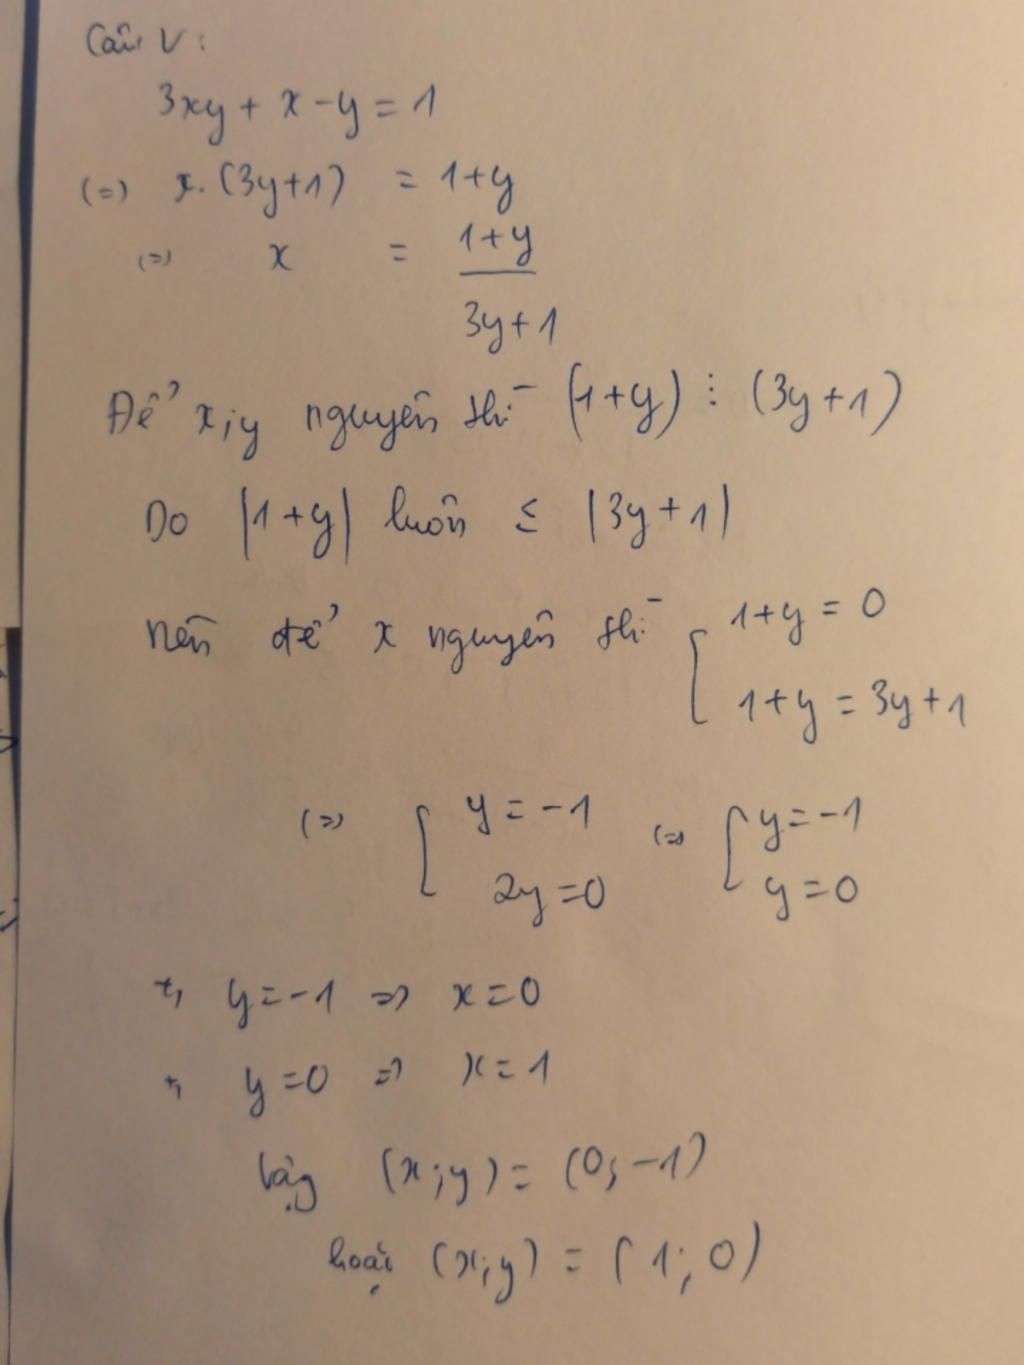 Câu V:
3xy + x - y = 1
(=) x. (3y+1) = 1+y
(=) x = \frac{1+y}{3y+1}
Để x;y nguyên thì (1+y) ⋮ (3y+1)
Do |1+y| luôn ≤ |3y+1|
nên để x nguyên thì [ 1+y = 0
1+y = 3y+1
(=) [ y = -1 (=) [ y = -1
2y = 0 y = 0
+, y = -1 => x = 0
+, y = 0 => x = 1
Vậy (x;y) = (0; -1)
hoặc (x;y) = (1; 0)